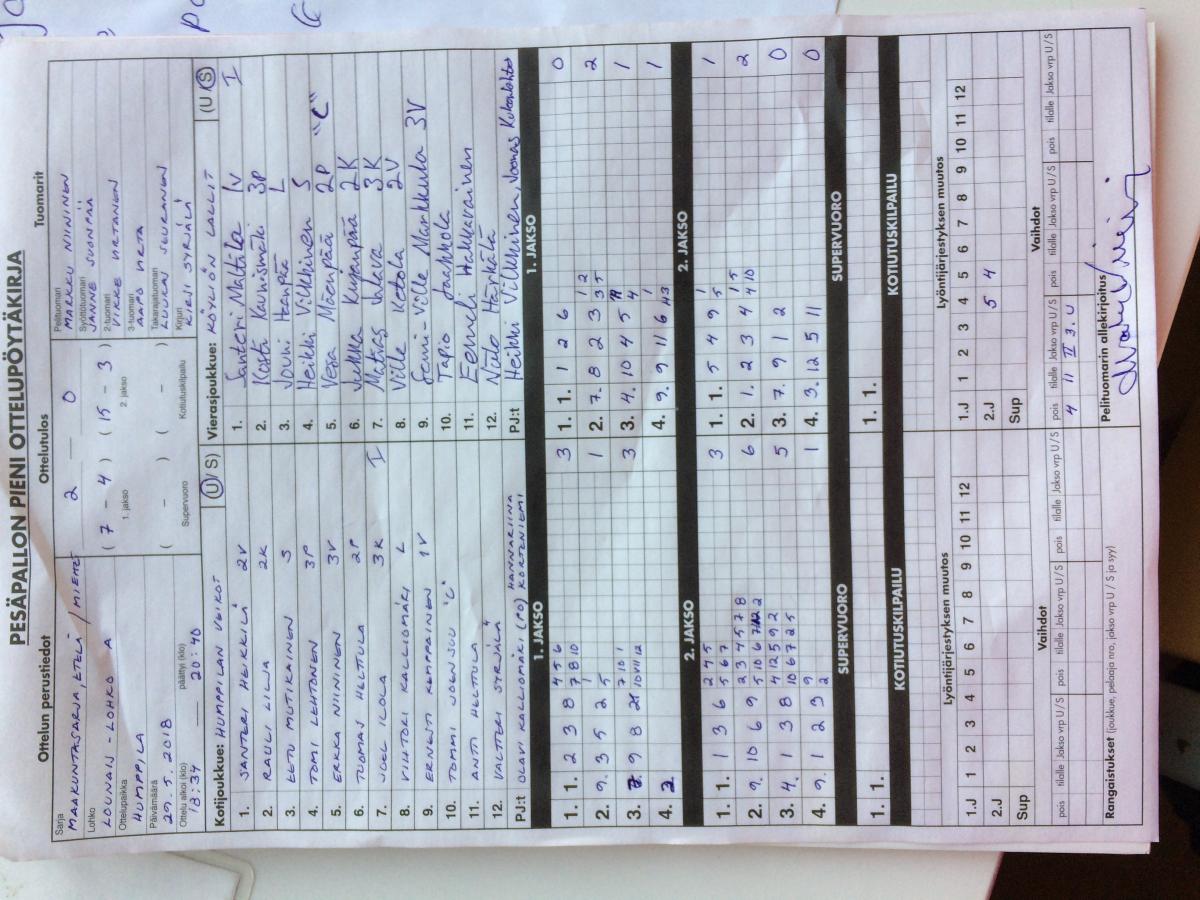 PESÄPALLON PIENI OTTELUPÖYTÄKIRJA
Ottelun perustiedot
Ottelutulos
Tuomarit
Sarja
MAAKUNTASARJA, ETELÄ / MIEHET
Lohko
LOUNAIS-LOHKO A
Ottelupaikka
HUMPPILA
Päivämäärä
29.5.2018
Ottelu alkoi (klo) päättyi (klo)
18:37 — 20:40
2 — 0
( 7 - 4 ) ( 15 - 3 )
1. jakso 2. jakso
( - ) ( - )
Supervuoro Kotiutuskilpailu
Pelituomari
MARKKU NIININEN
Syöttötuomari
JANNE SUONPÄÄ
2-tuomari
VIKKE VIRTANEN
3-tuomari
AAPO
Takarajatuomari
Kirjuri
KIRSI SYRJÄLÄ
Kotijoukkue: HUMPPILAN VEIKOT (U / S)
1. SANTERI HEIKKILÄ 2V
2. RAULI LILJA 2K
3. EETU MUTIKAINEN S
4. TOMI LEHTONEN 3P
5. ERKKA NIININEN 3V
6. TUOMAS HELTTULA 2P
7. JOEL ILOLA 3K I
8. VIHTORI KALLIOMÄKI L
9. ERNESTI KEMPPAINEN 1V
10. TOMMI JOENSUU "C"
11. ANTTI HELTTULA
12. VALTTERI SYRJÄLÄ
PJ:t OLAVI KALLIOMÄKI (PO) HANNARIINA KORTENIEMI
Vierasjoukkue: KÖYLIÖN LALLIT (U / S)
1. Santeri Mältälä 1V I
2. Kosti Kaunismäki 3P
3. Jouni Haanpää L
4. Heikki Vilkkinen S
5. Vesa Mäenpää 2P "C"
6. Jukka Kujanpää 2K
7. Matias Salava 3K
8. Ville Ketola 2V
9. Sami-Ville Markkula 3V
10. Tapio Jaakkola
11. Eemeli Hakkavainen
12. Niilo Härkälä
PJ:t Heikki Vilkkinen, Joonas
1. JAKSO
1. 1. 2 3 8 4 5 6 7 8 10 3
2. 9. 3 5 2 1 5 1
3. 9 8 7 10 1 10 11 12 3
4. 2.
1. JAKSO
1. 1. 1 2 6 0
2. 7. 8 2 3 1 2 3 5 2
3. 4. 10 4 5 4 1
4. 9. 9 11 6 1 4 3 1
2. JAKSO
1. 1. 1 3 6 2 4 5 5 6 7 3
2. 9. 10 6 9 2 3 4 5 7 8 5 10 6 7 2 6
3. 4. 1 3 8 4 12 5 9 2 10 6 7 2 5 5
4. 9. 1 2 3 9 2 1
2. JAKSO
1. 1. 5 4 9 1 5 1
2. 1. 2 3 4 1 5 4 10 2
3. 7. 9 1 2 0
4. 3. 12 5 11 0
SUPERVUORO
1. 1.
KOTIUTUSKILPAILU
SUPERVUORO
1. 1.
KOTIUTUSKILPAILU
Lyöntijärjestyksen muutos
1.J 1 2 3 4 5 6 7 8 9 10 11 12
2.J
Sup
Lyöntijärjestyksen muutos
1.J 1 2 3 4 5 6 7 8 9 10 11 12
2.J 5 4
Sup
Vaihdot
pois tilalle Jakso vrp U / S pois tilalle Jakso vrp U / S pois tilalle Jakso vrp U / S
Vaihdot
pois tilalle Jakso vrp U / S pois tilalle Jakso vrp U / S pois tilalle Jakso vrp U / S
4 11 II 3. U
Rangaistukset (joukkue, pelaaja nro, jakso vrp U / S ja syy)
Pelituomarin allekirjoitus